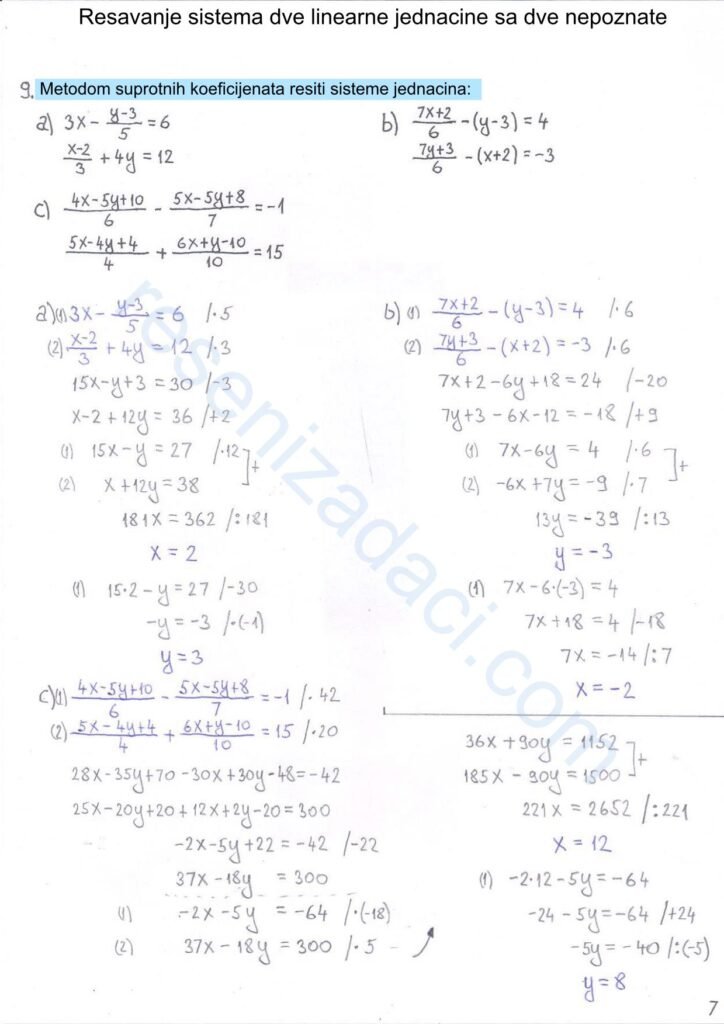 Resavanje sistema dve linearne jednacine sa dve nepoznate
9. Metodom suprotnih koeficijenata resiti sisteme jednacina:
a) 3x - (y-3)/5 = 6
(x-2)/3 + 4y = 12
b) (7x+2)/6 - (y-3) = 4
(7y+3)/6 - (x+2) = -3
c) (4x-5y+10)/6 - (5x-5y+8)/7 = -1
(5x-4y+4)/4 + (6x+y-10)/10 = 15
a) (1) 3x - (y-3)/5 = 6 /·5
(2) (x-2)/3 + 4y = 12 /·3
15x-y+3 = 30 /-3
x-2+12y = 36 /+2
(1) 15x-y = 27 /·12
(2) x+12y = 38
+
181x = 362 /:181
x = 2
(1) 15·2-y = 27 /-30
-y = -3 /·(-1)
y = 3
b) (1) (7x+2)/6 - (y-3) = 4 /·6
(2) (7y+3)/6 - (x+2) = -3 /·6
7x+2-6y+18 = 24 /-20
7y+3-6x-12 = -18 /+9
(1) 7x-6y = 4 /·6
(2) -6x+7y = -9 /·7
+
13y = -39 /:13
y = -3
(1) 7x-6·(-3) = 4
7x+18 = 4 /-18
7x = -14 /:7
x = -2
c) (1) (4x-5y+10)/6 - (5x-5y+8)/7 = -1 /·42
(2) (5x-4y+4)/4 + (6x+y-10)/10 = 15 /·20
28x-35y+70-30x+30y-48 = -42
25x-20y+20+12x+2y-20 = 300
-2x-5y+22 = -42 /-22
37x-18y = 300
(1) -2x-5y = -64 /·(-18)
(2) 37x-18y = 300 /·5
36x+90y = 1152
185x-90y = 1500
+
221x = 2652 /:221
x = 12
(1) -2·12-5y = -64
-24-5y = -64 /+24
-5y = -40 /:(-5)
y = 8
7
resenizadaci.com